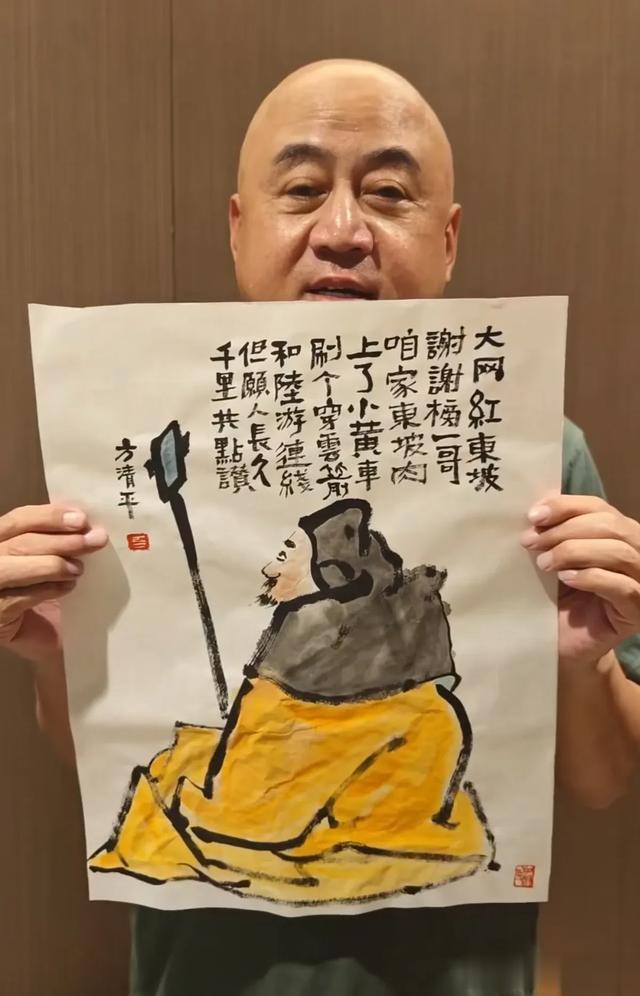 大网紅東坡
謝謝榜一哥
咱家東坡肉
上了小黄車
刷个穿雲箭
和陸游連綫
但願人長久
千里共點讚
方清平